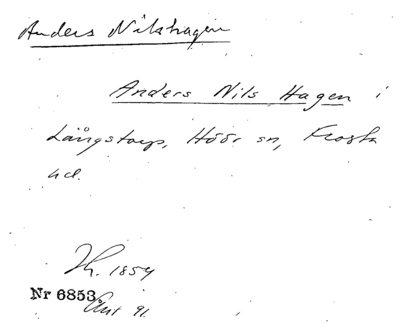 Anders Nilshagen
Anders Nils Hagen i
Långstorp, Höör sn, Frosta
hd.
Th. 1854
Nr 6853
91.